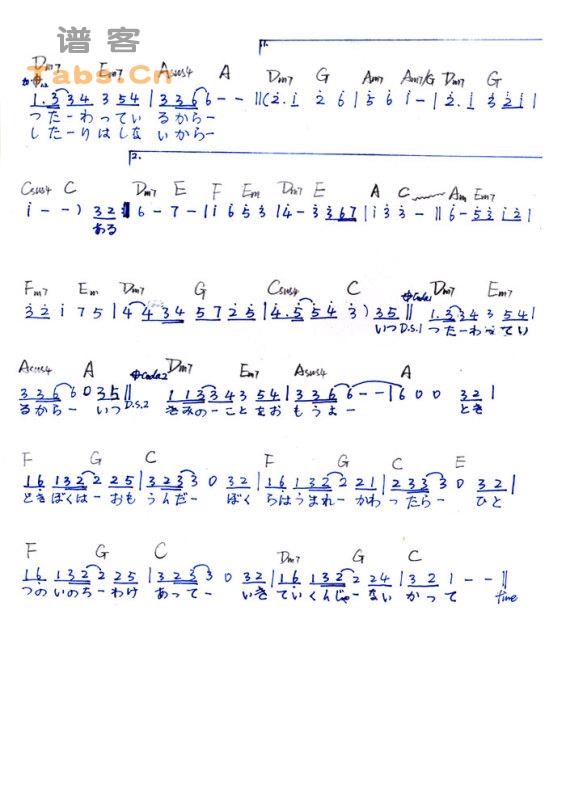 谱客
Tabs.Cn
1.
Dm7 Em7 Asus4 A Dm7 G Am7 Am7/G Dm7 G
1.334 354|3366--||(2.i 2 6|5 6 i-|2.i 32i|
つたーわっているからー
したーりはしないからー
2.
Csus4 C Dm7 E F Em Dm7 E A C Am Em7
i--) 32:||6-7-|i653|4-3367|i33-||6-53i2|
ある
Fm7 Em Dm7 G Csus4 C Coda1 Dm7 Em7
32i75|44345725|4.5543)35||1.334354|
いつ D.S.1 つたーわってい
Asus4 A Coda2 Dm7 Em7 Asus4 A
3366035||11334354|3366--|60032|
るからー いつ D.S.2 きみのーことをおもうよー とき
F G C F G C E
16132225|3233032|16132221|2333032|
ときぼくはーおもうんだー ぼくらはうまれーかわったらー ひと
F G C Dm7 G C
16132225|3233032|16132224|321--||
つのいのちーわけあってー いきていくんじゃーないかって fine